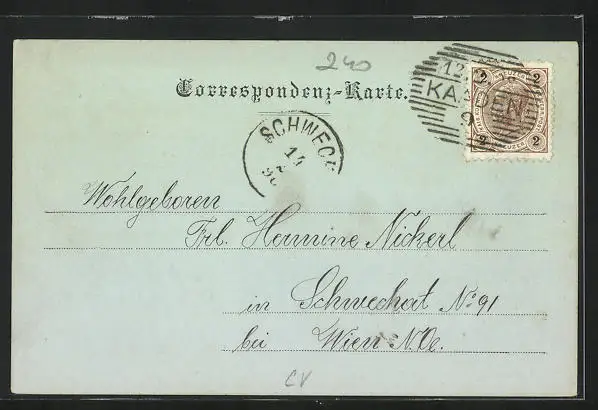 240
Correspondenz-Karte.
12
KAADEN
9
2 KREUZER 2
2 2
SCHWECH
14
Wohlgeboren
Frl. Hermine Nickerl
in Schwechat No 91
bei Wien N.Oe.
CV